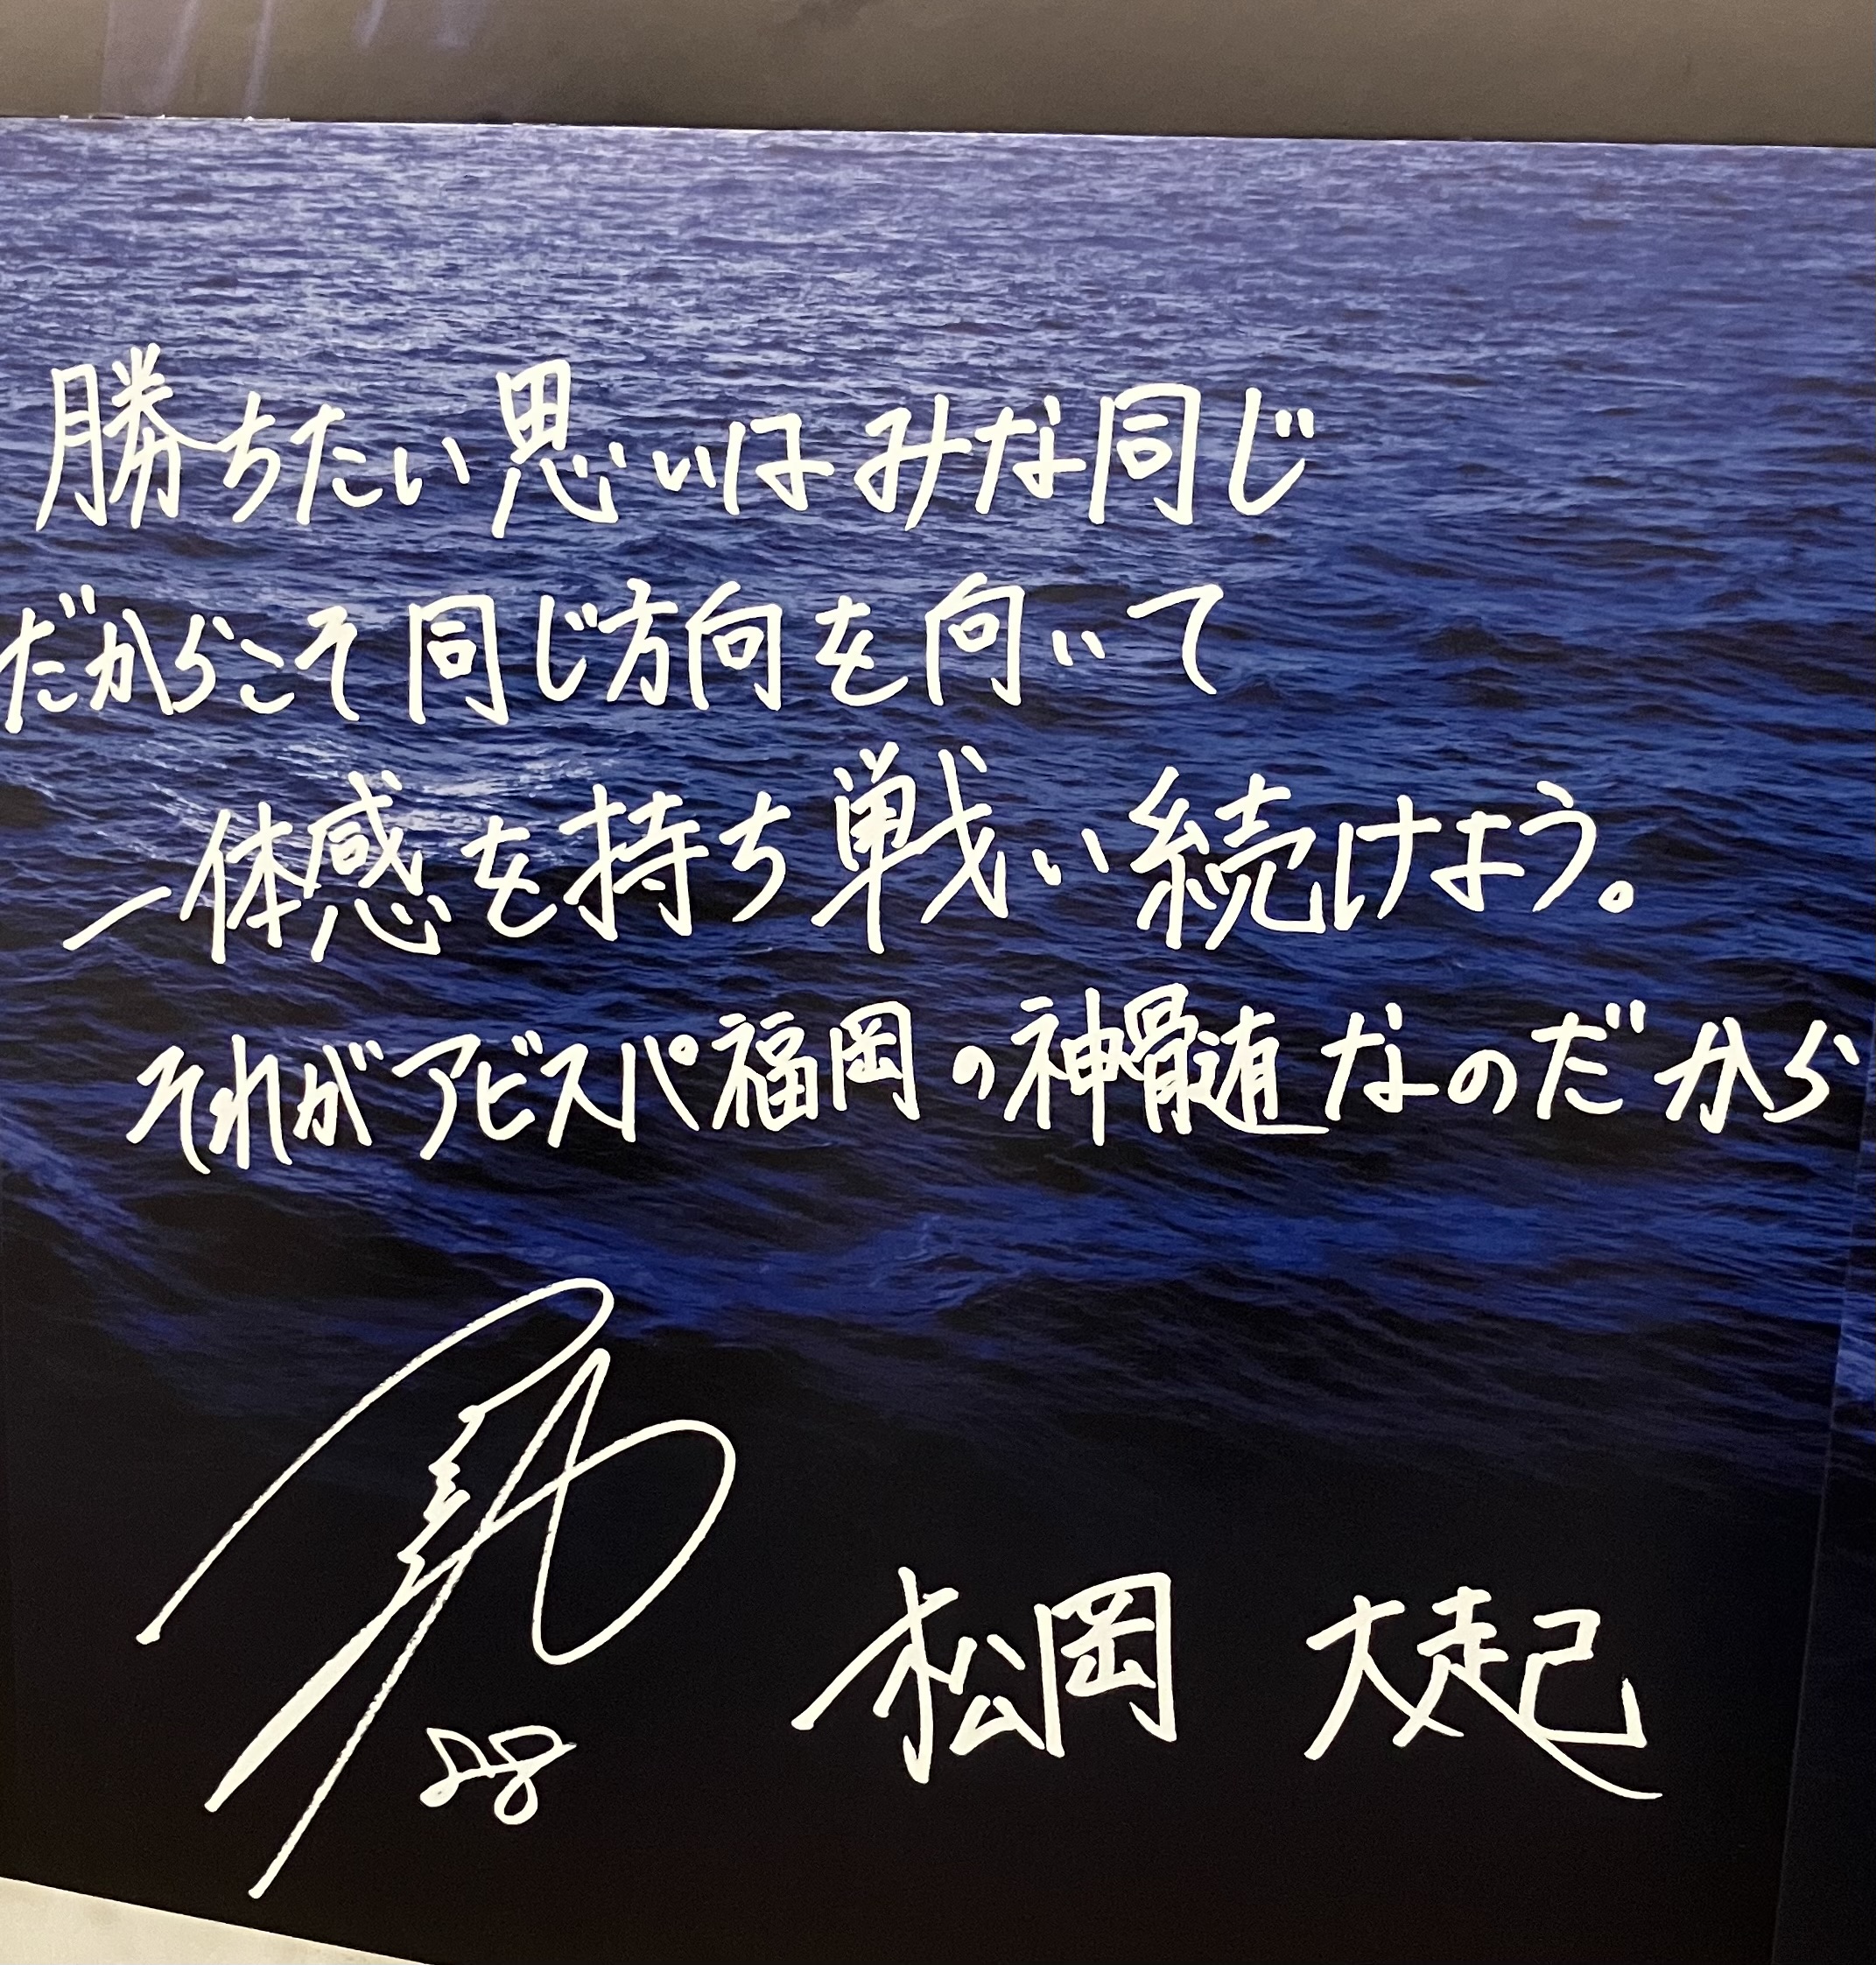 勝ちたい思いはみな同じ
だからこそ同じ方向を向いて
一体感を持ち戦い続けよう。
それがアビスパ福岡の神髄なのだから
松岡 大起
28